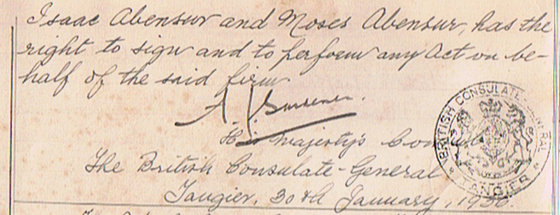 Isaac Abensur and Moses Abensur, has the
right to sign and to perform any Act on be-
half of the said firm
His Majesty's Consul
The British Consulate-General
Tangier, 30th January, 19
BRITISH CONSULATE-GENERAL
TANGIER